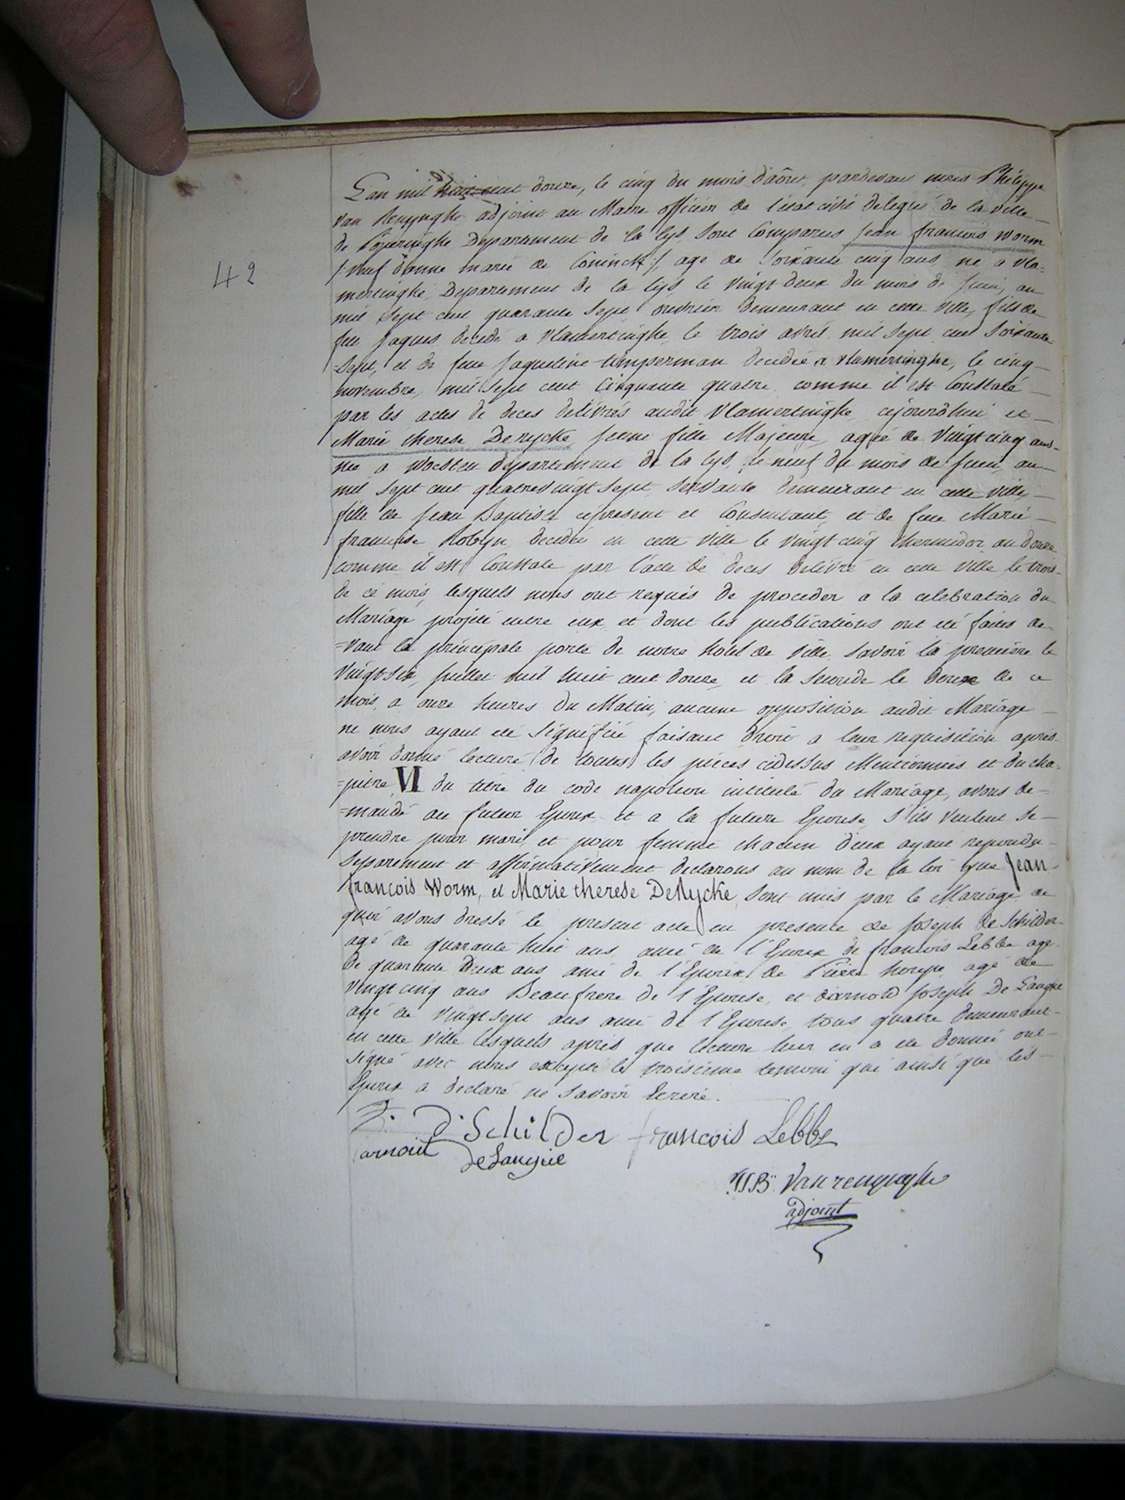 42
L'an mil huit cent douze, le cinq du mois d'août, pardevant nous Philippe
Van Renynghe adjoint au Maire officier de l'etat civil delegué de la ville
de Poperinghe Departement de la Lys sont comparus Jean francois Worm
veuf d'anne marie de Coninck, agé de soixante cinq ans, né a Vla-
mertinghe, Departement de la Lys le vingt deux du mois de juin, an
mil sept cent quarante sept ouvrier demeurant en cette ville, fils de
feu Jaques decedé a Vlamertinghe le trois avril mil sept cent soixante
sept, et de feue Jaqueline Timperman decedée a Vlamertinghe, le cinq
novembre, mil sept cent cinquante quatre comme il est Constaté
par les actes de deces delivrés audit Vlamertinghe cejourd'hui et
Marie therese DeRycke, jeune fille Majeure, agée de vingt cinq ans
née a Woesten departement de la Lys, le neuf du mois de juin, an
mil sept cent quatrevingt sept, servante demeurant en cette ville,
fille de Jean Baptiste cipresent et Consentant, et de feue Marie
francoise Robyn decedée en cette ville le vingt cinq thermidor an douze
comme il est Constaté par l'acte de deces delivré en cette ville le trois
de ce mois, lesquels nous ont requis de proceder a la celebration du
Mariage projeté entre eux et dont les publications ont eté faites de-
=vant la principale porte de notre hotel de Ville savoir la premiere le
vingt six, juillet mil huit cent douze, et la seconde le deux de ce
mois, a onze heures du Matin, aucune opposition audit Mariage
ne nous ayant eté signifiée faisant droit a leur requisition apres
avoir donné lecture de toutes les pieces cidessus Mentionnées et du cha-
=pitre VI du titre du code napoleon intitulé du Mariage, avons de-
=mandé au futur Epoux et a la future Epouse s'ils veulent se
prendre pour mari et pour femme chacun d'eux ayant repondu
separement et affirmativement declarons au nom de la loi que Jean
francois Worm, et Marie therese DeRycke, sont unis par le Mariage de
quoi avons dressé le present acte en presence de Joseph de Schilder
agé de quarante huit ans ami de l'Epoux de francois Lebbe agé
de quarante deux ans ami de l'Epoux, de Pierre agé de
vingt cinq ans Beaufrere de l'Epouse, et d'arnold Joseph De Langhe
agé de vingt sept ans ami de l'Epouse tous quatre demeurant
en cette ville lesquels apres que lecture leur en a eté donnée ont
signé avec nous excepté le troisieme temoin qui ainsi que les
Epoux a declaré ne savoir Ecrire.
J. D. Schilder francois Lebbe
arnout
Vanrenynghe
adjoint